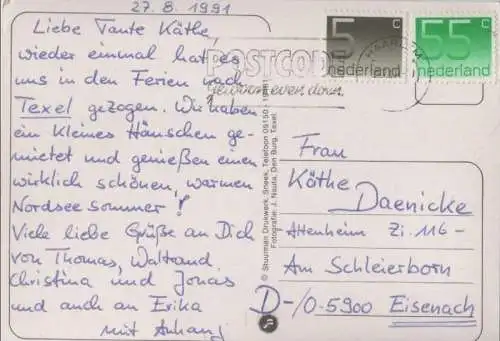 27.8.1991
Liebe Tante Käthe,
wieder einmal hat es
uns in den Ferien nach
Texel gezogen. Wir haben
ein kleines Häuschen ge-
mietet und genießen einen
wirklich schönen, warmen
Nordsee Sommer!
Viele liebe Grüße an Dich
von Thomas, Waltrand,
Christina und Jonas
und auch an Erika
mit Anhang
5 c
nederland
55 c
nederland
POSTCODE
gewoon even doen
© Stuurman Drukwerk, Sneek, Telefoon 05150
Fotografie: J. Nauta, Den Burg, Texel.
Frau
Käthe
Daenicke
Altenheim Zi. 116-
Am Schleierborn
D-/O-5900 Eisenach